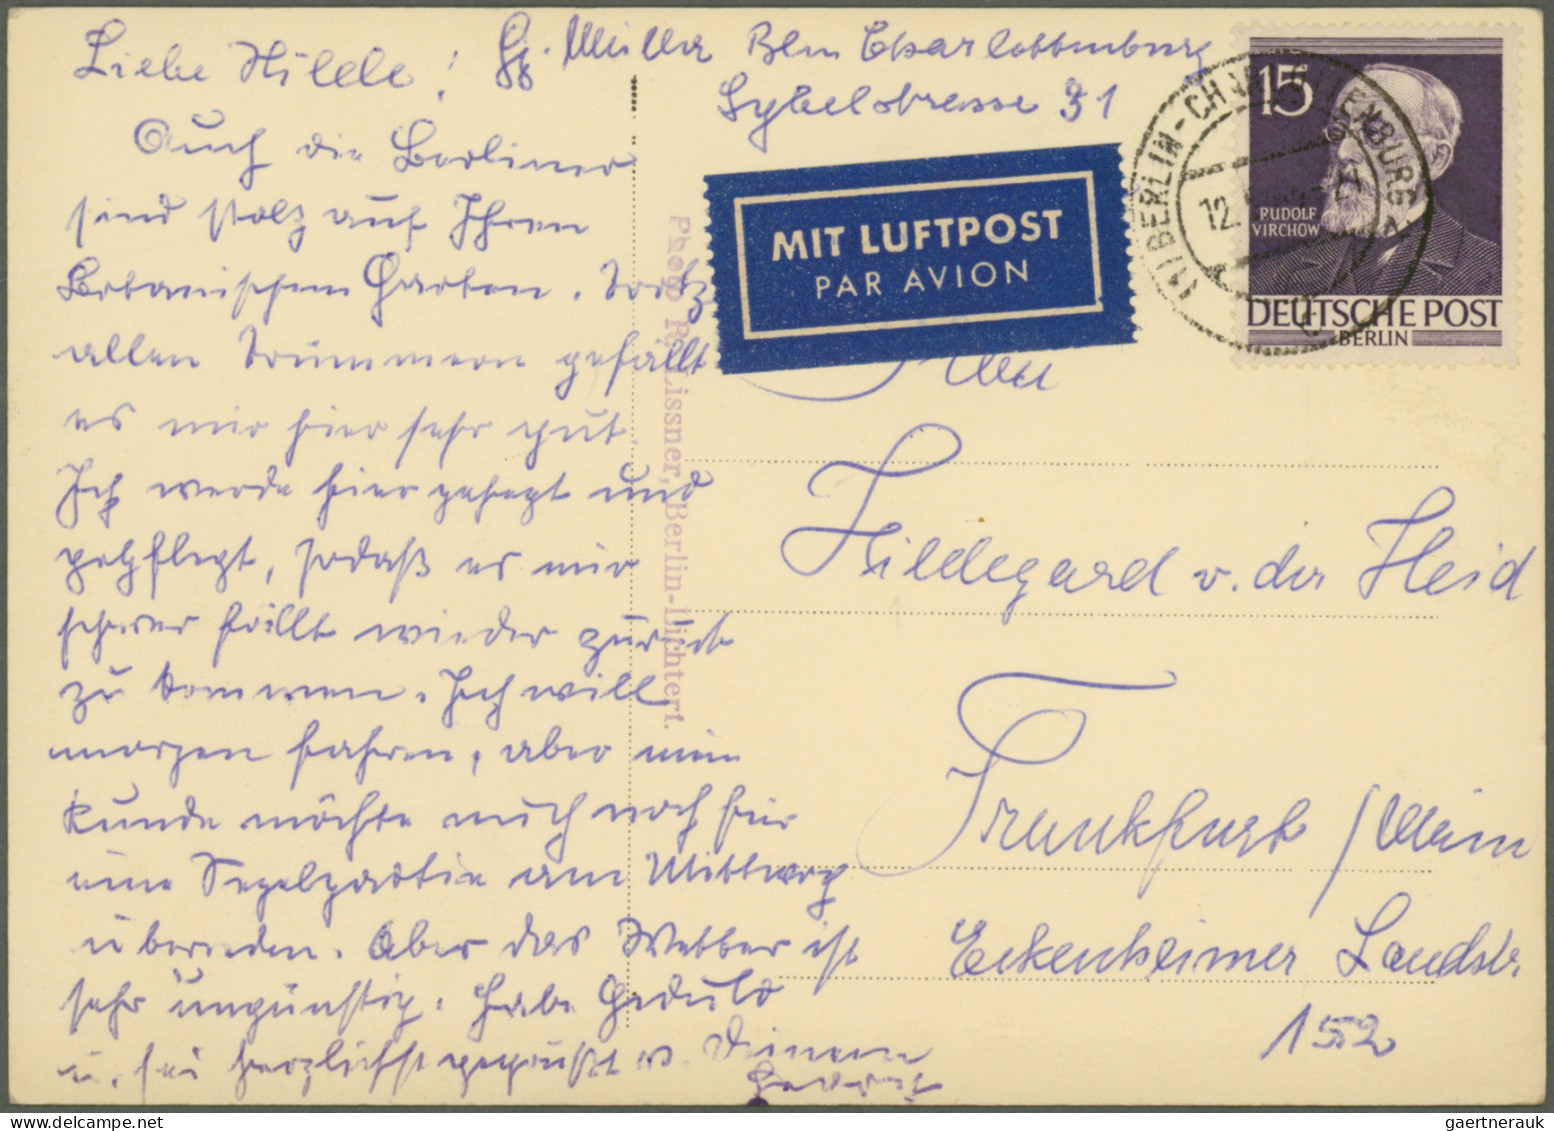 Liebe Hilde!
Müller Bln Charlottenburg
Sybelstrasse 31
Auch die Berliner
sind stolz auf Ihren
Botanischen Garten. Trotz
allen Trümmern gefällt
es mir hier sehr gut.
Ich werde hier gehegt und
gepflegt, sodaß es mir
schwer fällt wieder zurück
zu kommen. Ich will
morgen fahren, aber mein
Kunde möchte mich noch für
eine Segelpartie am Mittwoch
überreden. Aber das Wetter ist
sehr ungünstig. Habe Geduld
u. sei herzlichst gegrüßt v. Deinem
MIT LUFTPOST
PAR AVION
15
RUDOLF
VIRCHOW
DEUTSCHE POST
BERLIN
(1) BERLIN-CHARLOTTENBURG
12.
Photo R. Lissner, Berlin-Lichterf.
Hildegard v. der Heid
Frankfurt / Main
Eckenheimer Landstr.
152
gaertnerauk @ delcampe.net